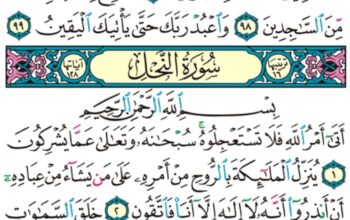 مِّنَ ٱلسَّٰجِدِينَ ٩٨ وَٱعۡبُدۡ رَبَّكَ حَتَّىٰ يَأۡتِيَكَ ٱلۡيَقِينُ ٩٩
ترتيبها ١٦ سُورَةُ النَّحۡلِ آياتها ١٢٨
بِسۡمِ ٱللَّهِ ٱلرَّحۡمَٰنِ ٱلرَّحِيمِ
أَتَىٰٓ أَمۡرُ ٱللَّهِ فَلَا تَسۡتَعۡجِلُوهُۚ سُبۡحَٰنَهُۥ وَتَعَٰلَىٰ عَمَّا يُشۡرِكُونَ
١ يُنَزِّلُ ٱلۡمَلَٰٓئِكَةَ بِٱلرُّوحِ مِنۡ أَمۡرِهِۦ عَلَىٰ مَن يَشَآءُ مِنۡ عِبَادِهِۦٓ
أَنۡ أَنذِرُوٓاْ أَنَّهُۥ لَآ إِلَٰهَ إِلَّآ أَنَا۠ فَٱتَّقُونِ ٢ خَلَقَ ٱلسَّمَٰوَٰتِ